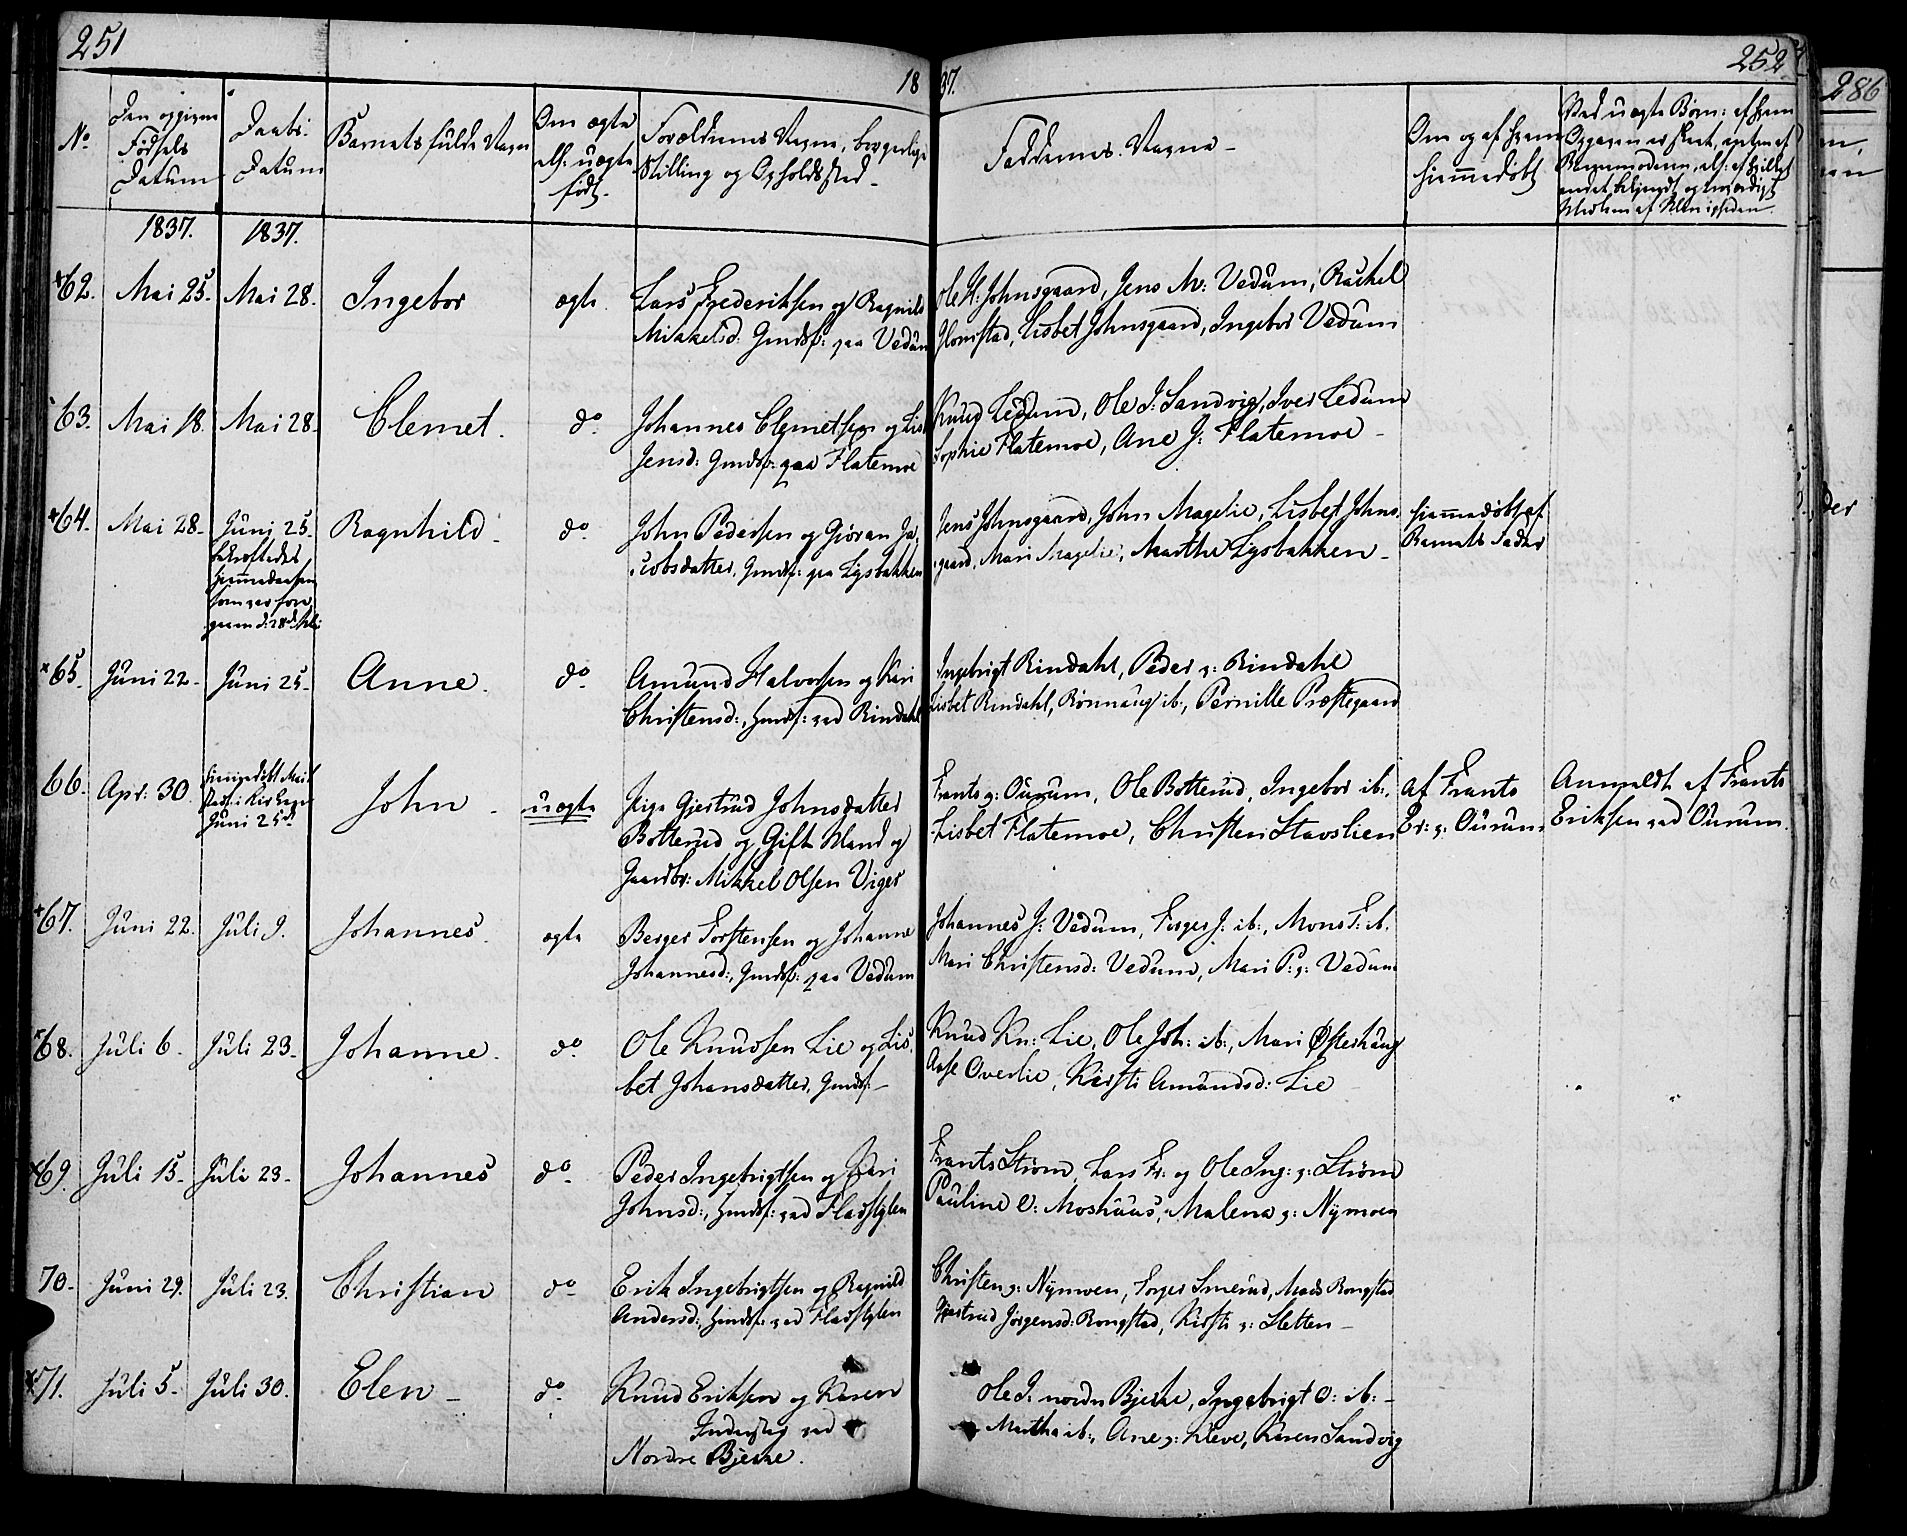 251
252
286
18 37.
No
Den opgivne Fødsels Datum
Daabs: Datum
Barnets fulde Navn
Om ægte elf: uægte født.
Forældrenes Navne, borgerlige Stilling og Opholdssted.
Faddernes Navne
Om og af hvem hjemmedøbt
Ved uægte Børn: af hvem
1837. 1837.
62. Mai 25. Mai 28. Ingebor ægte Lars Frederiksen og Ragnild Ole H: Johnsgaard, Jens M: Vedum, Rachel
Mikkelsd: Gmdsf: paa Vedum Homstad, Lisbet Johnsgaard, Ingebor Vedum
63. Mai 18. Mai 28. Clemet. do. Johannes Clemetsen og Lis Knud Ledum, Ole J: Sandvig, Iver Ledum
Jensd: Gmdsf: paa Flatemoe Sophie Flatemoe, Ane J: Flatemoe
64. Mai 28. Juni 25. Ragnhild do. John Pedersen og Gjøran Ja- Jens Johnsgaard, John Magelie, Lisbet Johns- hjemmedøbt af
cobsdatter, Gmdsf: paa Lysbakken gaard, Mari Magelie, Marthe Lysbakken Barnets Fader
bekræftedes
hjemmedaaben
som var fore
gaaen d: 28de Mai
65. Juni 22. Juni 25. Anne. do. Amund Halvorsen og Kari Ingebrigt Rindahl, Peder s: Rindahl
Christensd:, Hmdsf: ved Rindahl Lisbet Rindahl, Rønnaug ib:, Pernille Præstegaard
66. Apr: 30. hjemmedøbt Mai
Juni 25de John uægte Pige Gjertrud Johnsdatter Frants s: Ourum, Ole Botterud, Ingebor ib:, Af Frants Anmeldt af Frants
Botterud og Gift Mand og Lisbet Flatemoe, Christen Stavslien Er: s: Ourum. Eriksen ved Ourum.
Gaardbr: Mikkel Olsen Viger
67. Juni 22. Juli 9. Johannes. ægte Berger Torstensen og Johanne Johannes J: Vedum, Torger J: ib:, Mons T: ib.
Johannesd:, Gmdsf: paa Vedum Mari Christensd: Vedum, Mari P: s: Vedum
68. Juli 6. Juli 23. Johanne. do. Ole Knudsen Lie og Lis- Knud Kn: Lie, Ole Joh: ib:, Mari Østerhaug
bet Johansdatter, Gmdsf: Aase Overlie, Kirsti Amundsd: Lie
69. Juli 15. Juli 23. Johannes do. Peder Ingebrigtsen og Kari Frants Strøm, Lars Fr: og Ole Ing: s: Strøm
Johnsd:, Hmdsf: ved Fladstylen Pauline O: Moshuus, Malena s: Nymoen
70. Juni 29. Juli 23. Christian do. Erik Ingebrigtsen og Ragnild Christen s: Nymoen, Torger Smerud, Mads Rongstad
Andersd:, Hmdsf: ved Fladstylen Gjertrud Jørgensd: Rongstad, Kirsti s: Sletten
71. Juli 5. Juli 30. Elen do. Knud Eriksen og Karen Ole J: nordre Bjerke, Ingebrigt O: ib:
Inderster ved Marthe ib:, Ane s: Kleve, Karen Sandvig
Nordre Bjerke.